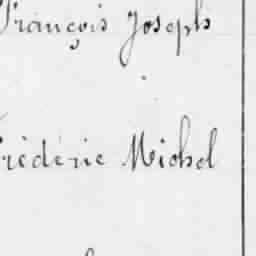 François Joseph
Frédéric Michel